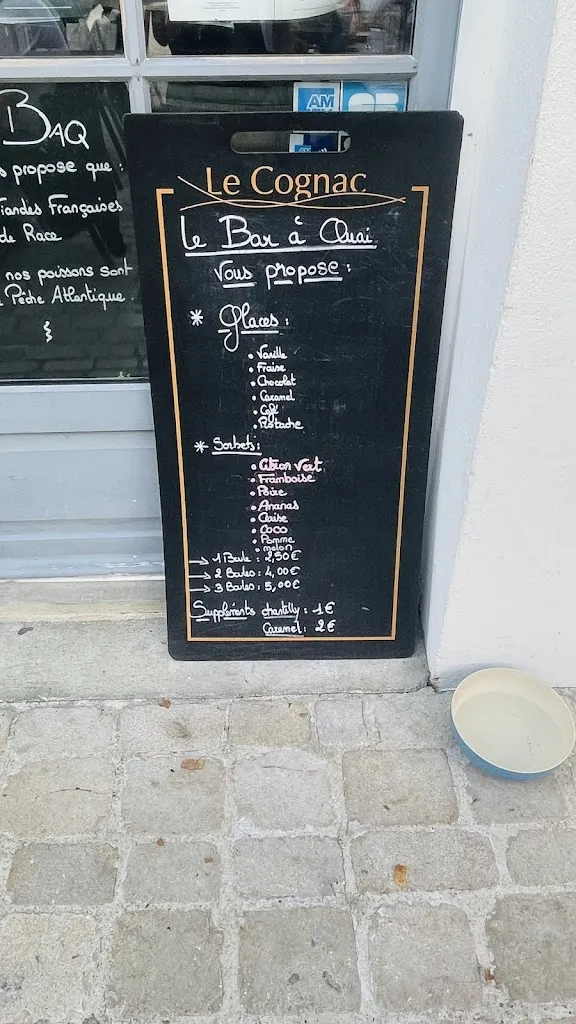 BAQ
propose que :
Viandes Françaises
de Race
nos poissons sont
Pêche Atlantique
AM
Le Cognac
Le Bar à Quai
Vous propose :
* Glaces :
• Vanille
• Fraise
• Chocolat
• Caramel
• Café
• Pistache
* Sorbets :
• Citron Vert
• Framboise
• Poire
• Ananas
• Cerise
• Coco
• Pomme
• melon
→ 1 Boule : 2,50€
→ 2 Boules : 4,00€
→ 3 Boules : 5,00€
Suppléments chantilly : 1€
Caramel : 2€